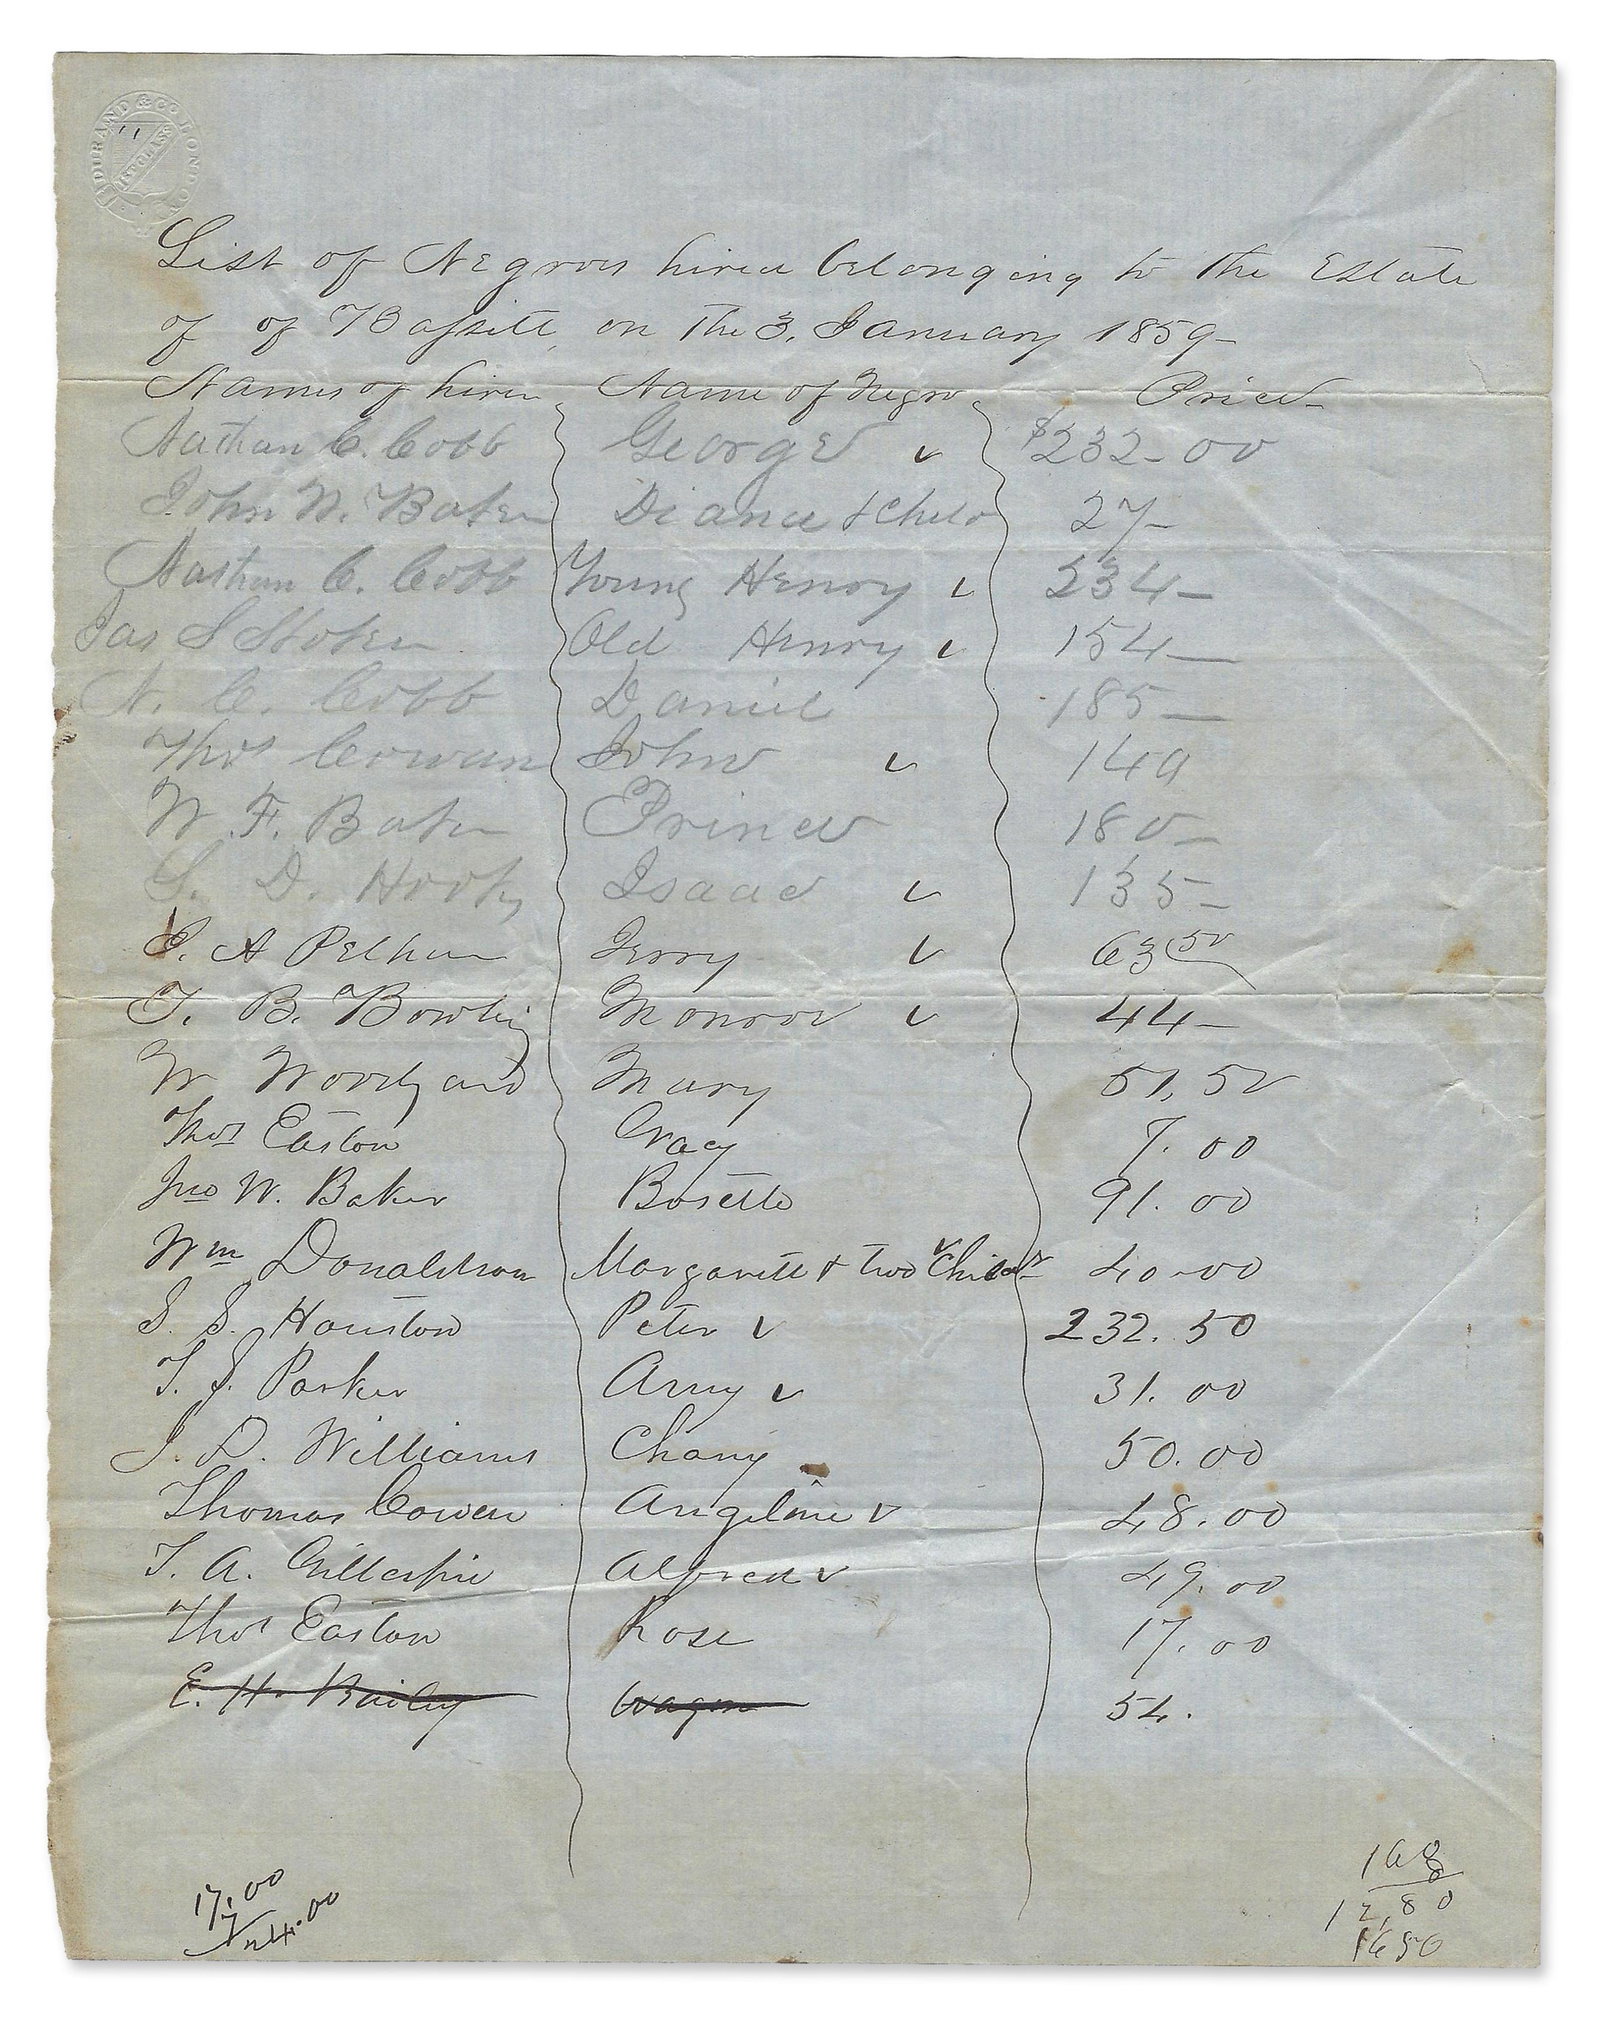 DURAND & Co LONDON
1ST CLASS
List of Negroes hired belonging to the Estate
of of Bassett, on the 3. January 1859-
Names of hirer Name of Negro Price
Nathan C. Cobb George $232-00
John W. Baker Diana & Child 27-
Nathan C. Cobb Young Henry 234-
Jas S Stoker Old Henry 154-
N. C. Cobb Daniel 185-
Thos Cowan John 149
W. F. Baker Prince 180-
S. D. Hooky Isaac 135-
S. A Pelham Jerry 63 50
T. B. Bowling Monroe 44-
W Woodyard Mary 51,50
Thos Easton Gracy 7.00
Jno W. Baker Bosette 91.00
Wm Donaldson Margarett & two Childr 40-00
S. S. Houston Peter 232.50
T. J. Parker Amy 31.00
J. D. Williams Chany 50.00
Thomas Cowen Angeline 48.00
T. A. Gillespie Alfred 49.00
Thos Easton Rose 17.00
E. H. Bailey Wagon 54.
17,00
7
24.00
168
12,80
1650